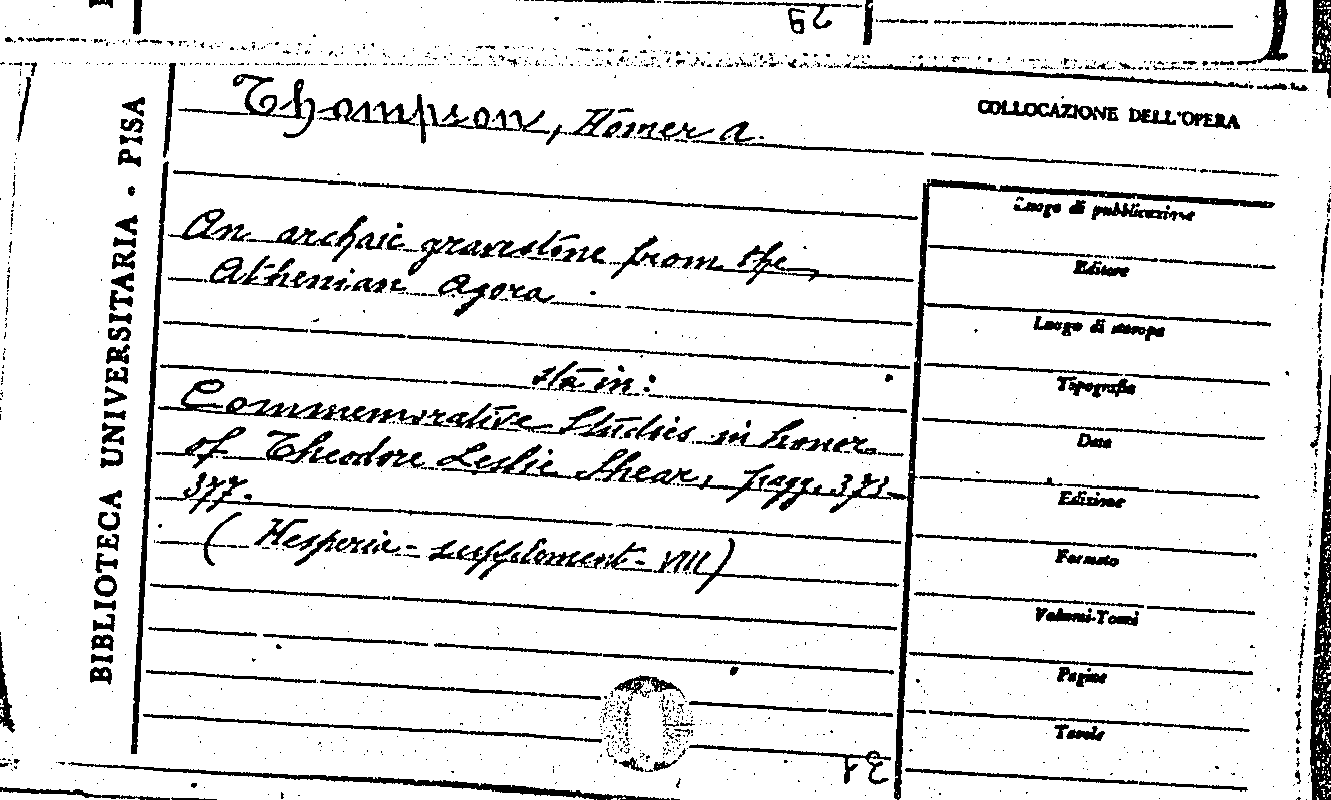 29
BIBLIOTECA UNIVERSITARIA - PISA
Thompson, Homer A.
COLLOCAZIONE DELL'OPERA
An archaic gravestone from the
Athenian Agora
sta in:
Commemorative Studies in honor
of Theodore Leslie Shear, pagg. 373-
377.
(Hesperia - supplement - VIII)
Luogo di pubblicazione
Editore
Luogo di stampa
Tipografia
Data
Edizione
Formato
Volumi-Tomi
Pagine
Tavole